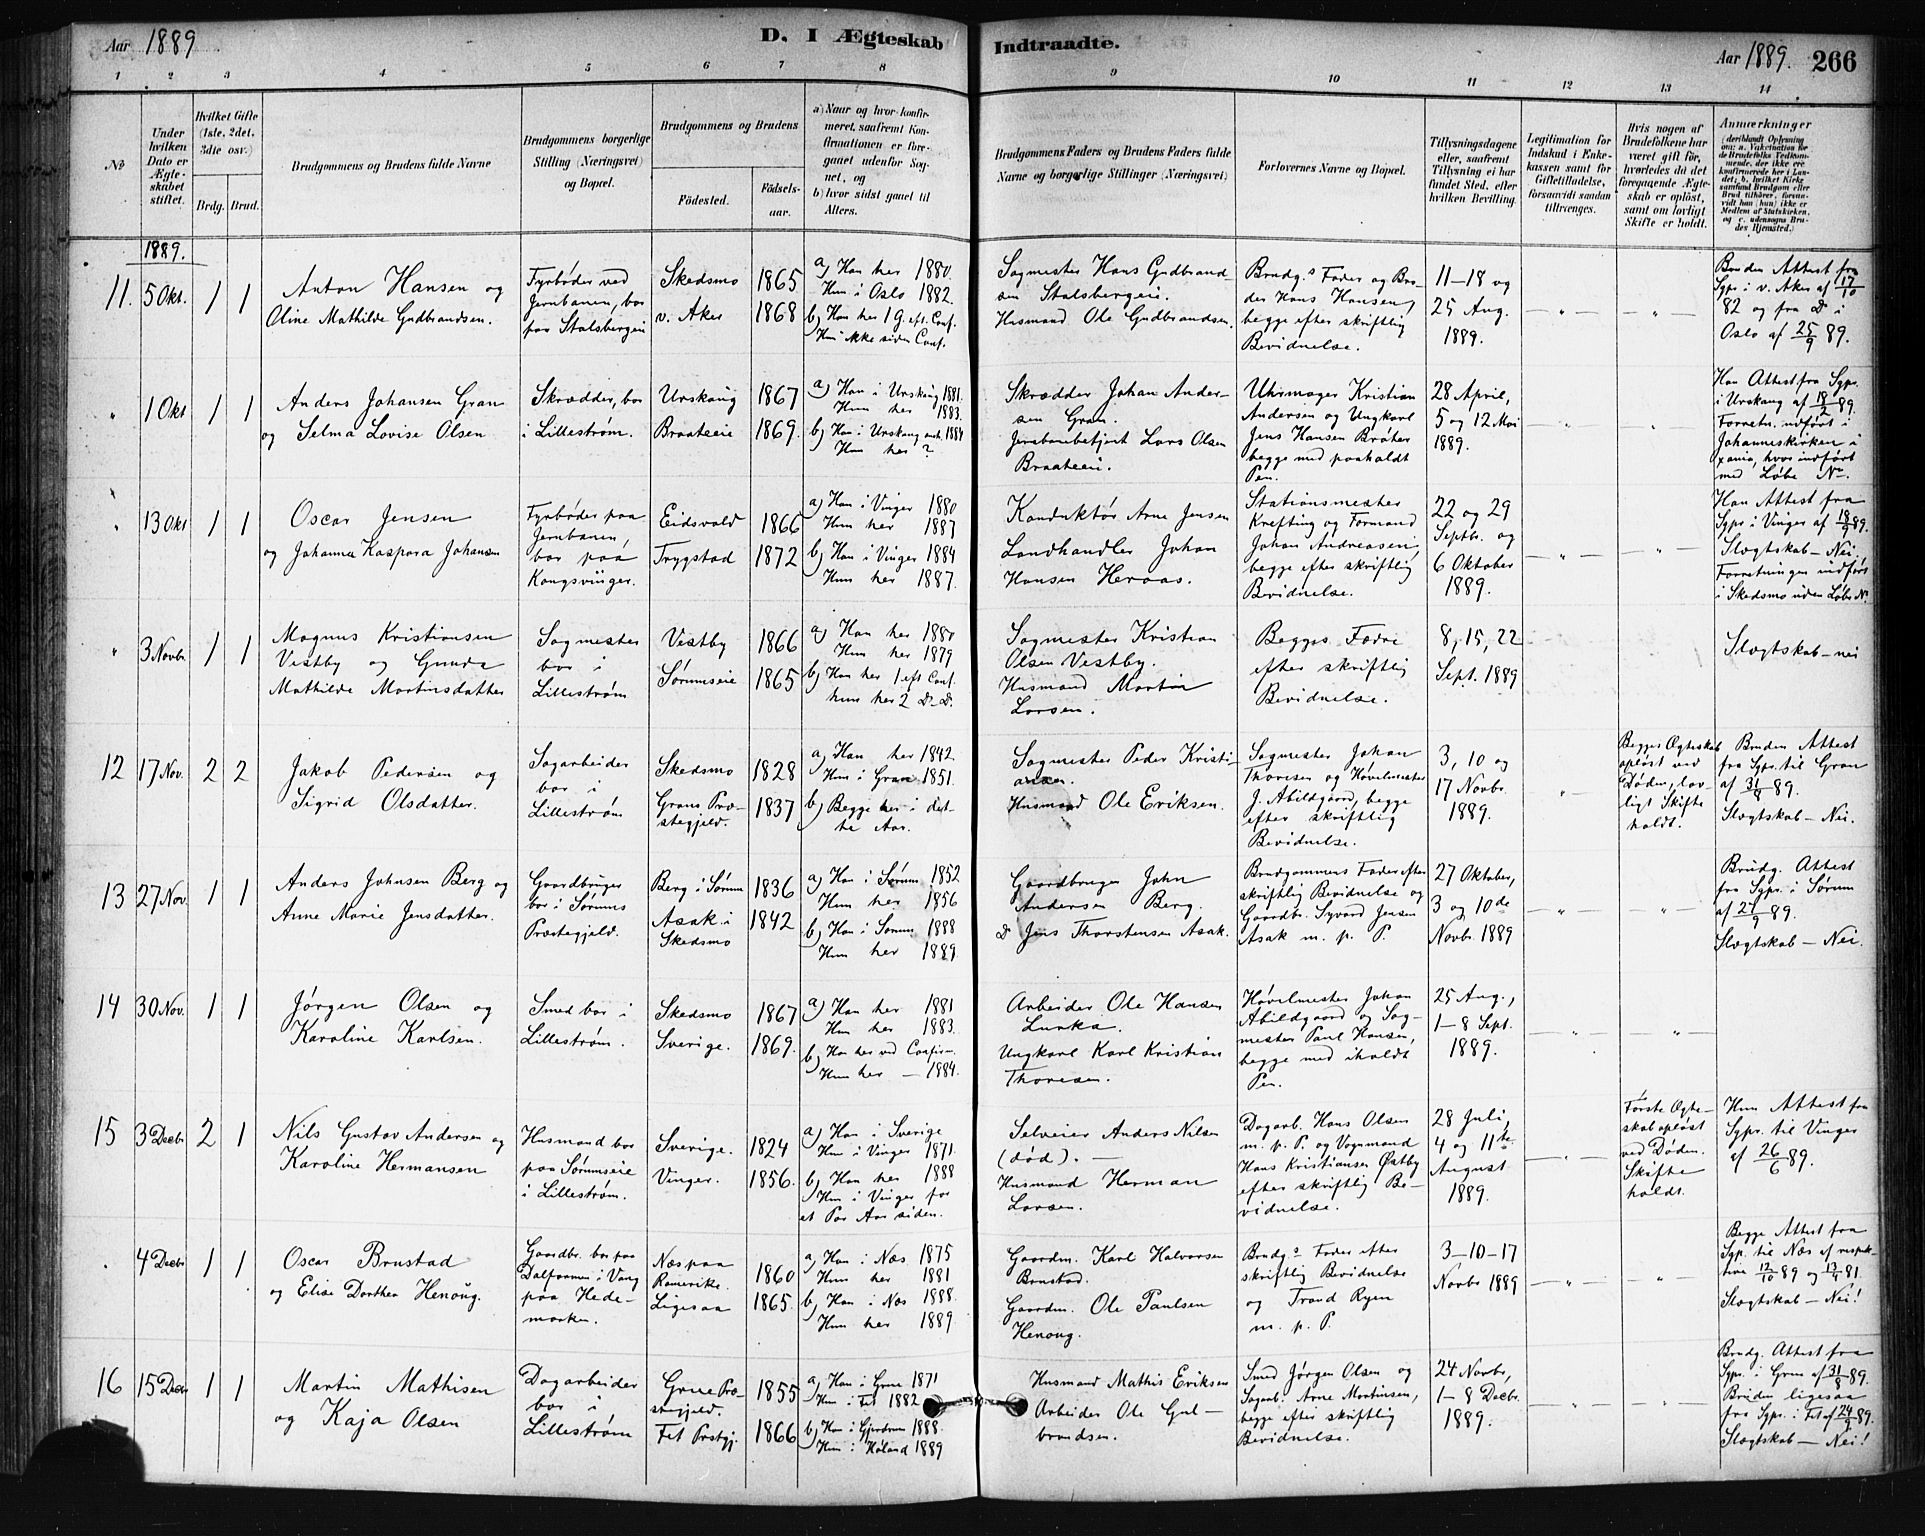 Aar 1889
D. I Ægteskab
Indtraadte.
Aar 1889. 266
1 2 3 4 5 6 7 8 9 10 11 12 13 14
No
Under hvilken Dato er Ægteskabet stiftet.
Hvilket Gifte (1ste, 2det, 3die osv.)
Brdg. Brud.
Brudgommens og Brudens fulde Navne
Brudgommens borgerlige Stilling (Næringsvei) og Bopæl.
Brudgommens og Brudens
Födested.
Födselsaar.
a) Naar og hvor konfirmeret, saafremt Konfirmationen er foregaaet udenfor Sognet, og
b) hvor sidst gaaet til Alters.
Brudgommens Faders og Brudens Faders fulde Navne og borgerlige Stillinger (Næringsvei)
Forlovernes Navne og Bopæl.
Tillysningsdagene eller, saafremt Tillysning ei har fundet Sted, efter hvilken Bevilling.
Legitimation for Indskud i Enkekassen samt for Giftetilladelse, forsaavidt saadan tiltrænges.
Hvis nogen af Brudefolkene har været gift för, hvorledes da det foregaaende Ægteskab er oplöst, samt om lovligt Skifte er holdt.
Anmærkninger
1889.
11. 5 Okt. 1 1
Anton Hansen og
Oline Mathilde Gudbrandsen.
Fyrbøder ved
Jernbanen, bor
paa Stalsbergeie
Skedsmo 1865
v. Aker 1868
a) Han her 1880.
Hun i Oslo 1882.
b) Han her 1 G. eft. Conf.
Hun ikke siden Conf.
Sagmester Hans Gudbrand-
sen Stalsbergeie.
Husmand Ole Gudbrandsen.
Brudg.s Fader og Bro-
der Hans Hansen,
begge efter skriftlig
Bevidnelse.
11–18 og
25 Aug.
1889.
Bruden Attest fra
Sgpr. i v. Aker af 17/10
82 og fra D i
Oslo af 25/9 89.
" 1 Okt 1 1
Anders Johansen Gran
og Selma Lovise Olsen
Skrædder, bor
i Lillestrøm.
Urskoug 1867
Braateeie 1869.
a) Han i Urskoug 1881.
Hun her 1883.
b) Han i Urskoug ant. 1884
Hun her ?
Skrædder Johan Ander-
sen Gran.
Jernbanebetjent Lars Olsen
Braateeie.
Uhrmager Kristian
Andersen og Ungkarl
Jens Hansen Bråter
begge med paaholdt
Pen.
28 April,
5 og 12 Mai
1889.
Han Attest fra Sgpr.
i Urskoug af 18/2 89.
Forretn. udført i
Johanneskirken i
Xania, hvor indført
med Løbe No.
" 13 Okt 1 1
Oscar Jensen
og Johanna Kaspara Johansen
Fyrbøder paa
Jernbanen,
bor paa
Kongsvinger.
Eidsvold 1866
Trygstad 1872
a) Han i Vinger 1880
Hun her 1887
b) Han i Vinger 1884
Hun her 1887.
Konduktør Arne Jensen
Landhandler Johan
Hansen Heraas.
Stationsmester
Krefting og Formand
Johan Andreasen,
begge efter skriftlig
Bevidnelse.
22 og 29
Septbr. og
6 Oktober
1889.
Han Attest fra
Sgpr i Vinger af 18/9 89.
Slægtskab – Nei.
Forretningen indført
i Skedsmo uden Løbe No.
" 3 Novbr. 1 1
Magnus Kristiansen
Vestby og Gunda
Mathilde Martinsdatter
Sagmester
bor i
Lillestrøm
Vestby 1866
Sørumseie 1865
a) Han her 1880
Hun her 1879
b) Han her 1 eft Conf.
hun her 2 D. D.
Sagmester Kristian
Olsen Vestby.
Husmand Martin
Larsen.
Begges Fædre
efter skriftlig
Bevidnelse.
8, 15, 22
Sept. 1889
Slægtskab – nei
12 17 Nov. 2 2
Jakob Pedersen og
Sigrid Olsdatter.
Sagarbeider
bor i
Lillestrøm
Skedsmo 1828
Grans Præ-
stegjeld. 1837
a) Han her 1842
Hun i Gran 1851.
b) Begge her i det-
te Aar.
Sagmester Peder Kristi-
ansen.
Husmand Ole Eriksen.
Sagmester Johan
Thoresen og Høvelmester
J. Abildgaard, begge
efter skriftlig
Bevidnelse.
3, 10 og
17 Novbr.
1889.
Begges Ægteskab
opløst ved
Døden, lov-
ligt Skifte
holdt.
Bruden Attest
fra Sgpr. til Gran
af 31/8 89.
Slægtskab – Nei.
13 27 Nov. 1 1
Anders Johnsen Berg og
Anne Marie Jensdatter.
Gaardbruger
bor i Sørums
Præstegjeld.
Berg i Sørum 1836
Asak i
Skedsmo 1842
a) Han i Sørum 1852
Hun her 1856
b) Han i Sørum 1888
Hun her 1889.
Gaardbruger John
Andersen Berg.
D Jens Thorstensen Asak.
Brudgommens Fader efter
skriftlig Bevidnelse og
Gaardbr. Syvard Jensen
Asak m. p. P.
27 Oktober,
3 og 10de
Novbr. 1889
Brudg. Attest
fra Sgpr. i Sørum
af 27/9 89.
Slægtskab – Nei.
14 30 Nov. 1 1
Jørgen Olsen og
Karoline Karlsen.
Smed bor i
Lillestrøm.
Skedsmo 1867
Sverige. 1869.
a) Han her 1881
Hun her 1883.
b) Han her ved Confirm.
Hun her – 1884.
Arbeider Ole Hansen
Lurka.
Ungkarl Karl Kristian
Thoresen.
Høvelmester Johan
Abildgaard og Sag-
mester Paul Hansen,
begge med iholdt
Pen.
25 Aug.,
1–8 Sept.
1889.
15 3 Decbr 2 1
Nils Gustav Andersen og
Karoline Hermansen
Husmand bor
paa Sørumseie
i Lillestrøm.
Sverige. 1824
Vinger. 1856.
a) Han i Sverige
Hun i Vinger 1871.
b) Han her 1888
Hun i Vinger for
et Par Aar siden.
Selveier Anders Nilsen
(død). –
Husmand Herman
Larsen.
Dagarb. Hans Olsen
m. p. P. og Vognmand
Hans Kristiansen Østby
efter skriftlig Be-
vidnelse.
28 Juli,
4 og 11te
August
1889.
Første Ægte-
skab opløst
ved Døden.
Skifte
holdt.
Hun Attest fra
Sgpr. til Vinger
af 26/6 89.
4 Decbr 1 1
Oscar Brustad
og Elise Dorthea Henöug.
Gaardbr. bor paa
Dalfarmen i Vang
paa Hede-
marken.
Næs paa
Romerike. 1860
Ligesaa 1865.
a) Han i Næs 1875
Hun her 1881
b) Han i Næs 1888.
Hun her 1889
Gaardm. Karl Halvorsen
Brustad.
Gaardm. Ole Paulsen
Henoug.
Brudg.s Fader efter
skriftlig Bevidnelse
og Trond Ryen
m. p. P.
3–10–17
Novbr 1889
Begge Attest fra
Sgp. til Næs af respek-
tive 12/10 89 og 13/4 81.
Slægtskab – Nei!
16 15 Decbr 1 1
Martin Mathisen
og Kaja Olsen
Dagarbeider
bor i
Lillestrøm
Grue Præ-
stegjeld. 1855
Fet Prstgj. 1866
a) Han i Grue 1871
Hun i Fet 1882
b) Han i Gjerdrum 1888.
Hun i Høland 1889
Husmand Mathis Eriksen
Arbeider Ole Gul-
brandsen.
Smed Jørgen Olsen og
Sagarb. Arne Mortinsen,
begge efter skriftlig
Bevidnelse.
24 Novbr,
1–8 Decbr.
1889.
Brudg. Attest fra
Sgpr. i Grue af 31/8 89.
Bruden ligesaa
fra Sgpr. i Fet af 24/9 89.
Slægtskab – Nei!